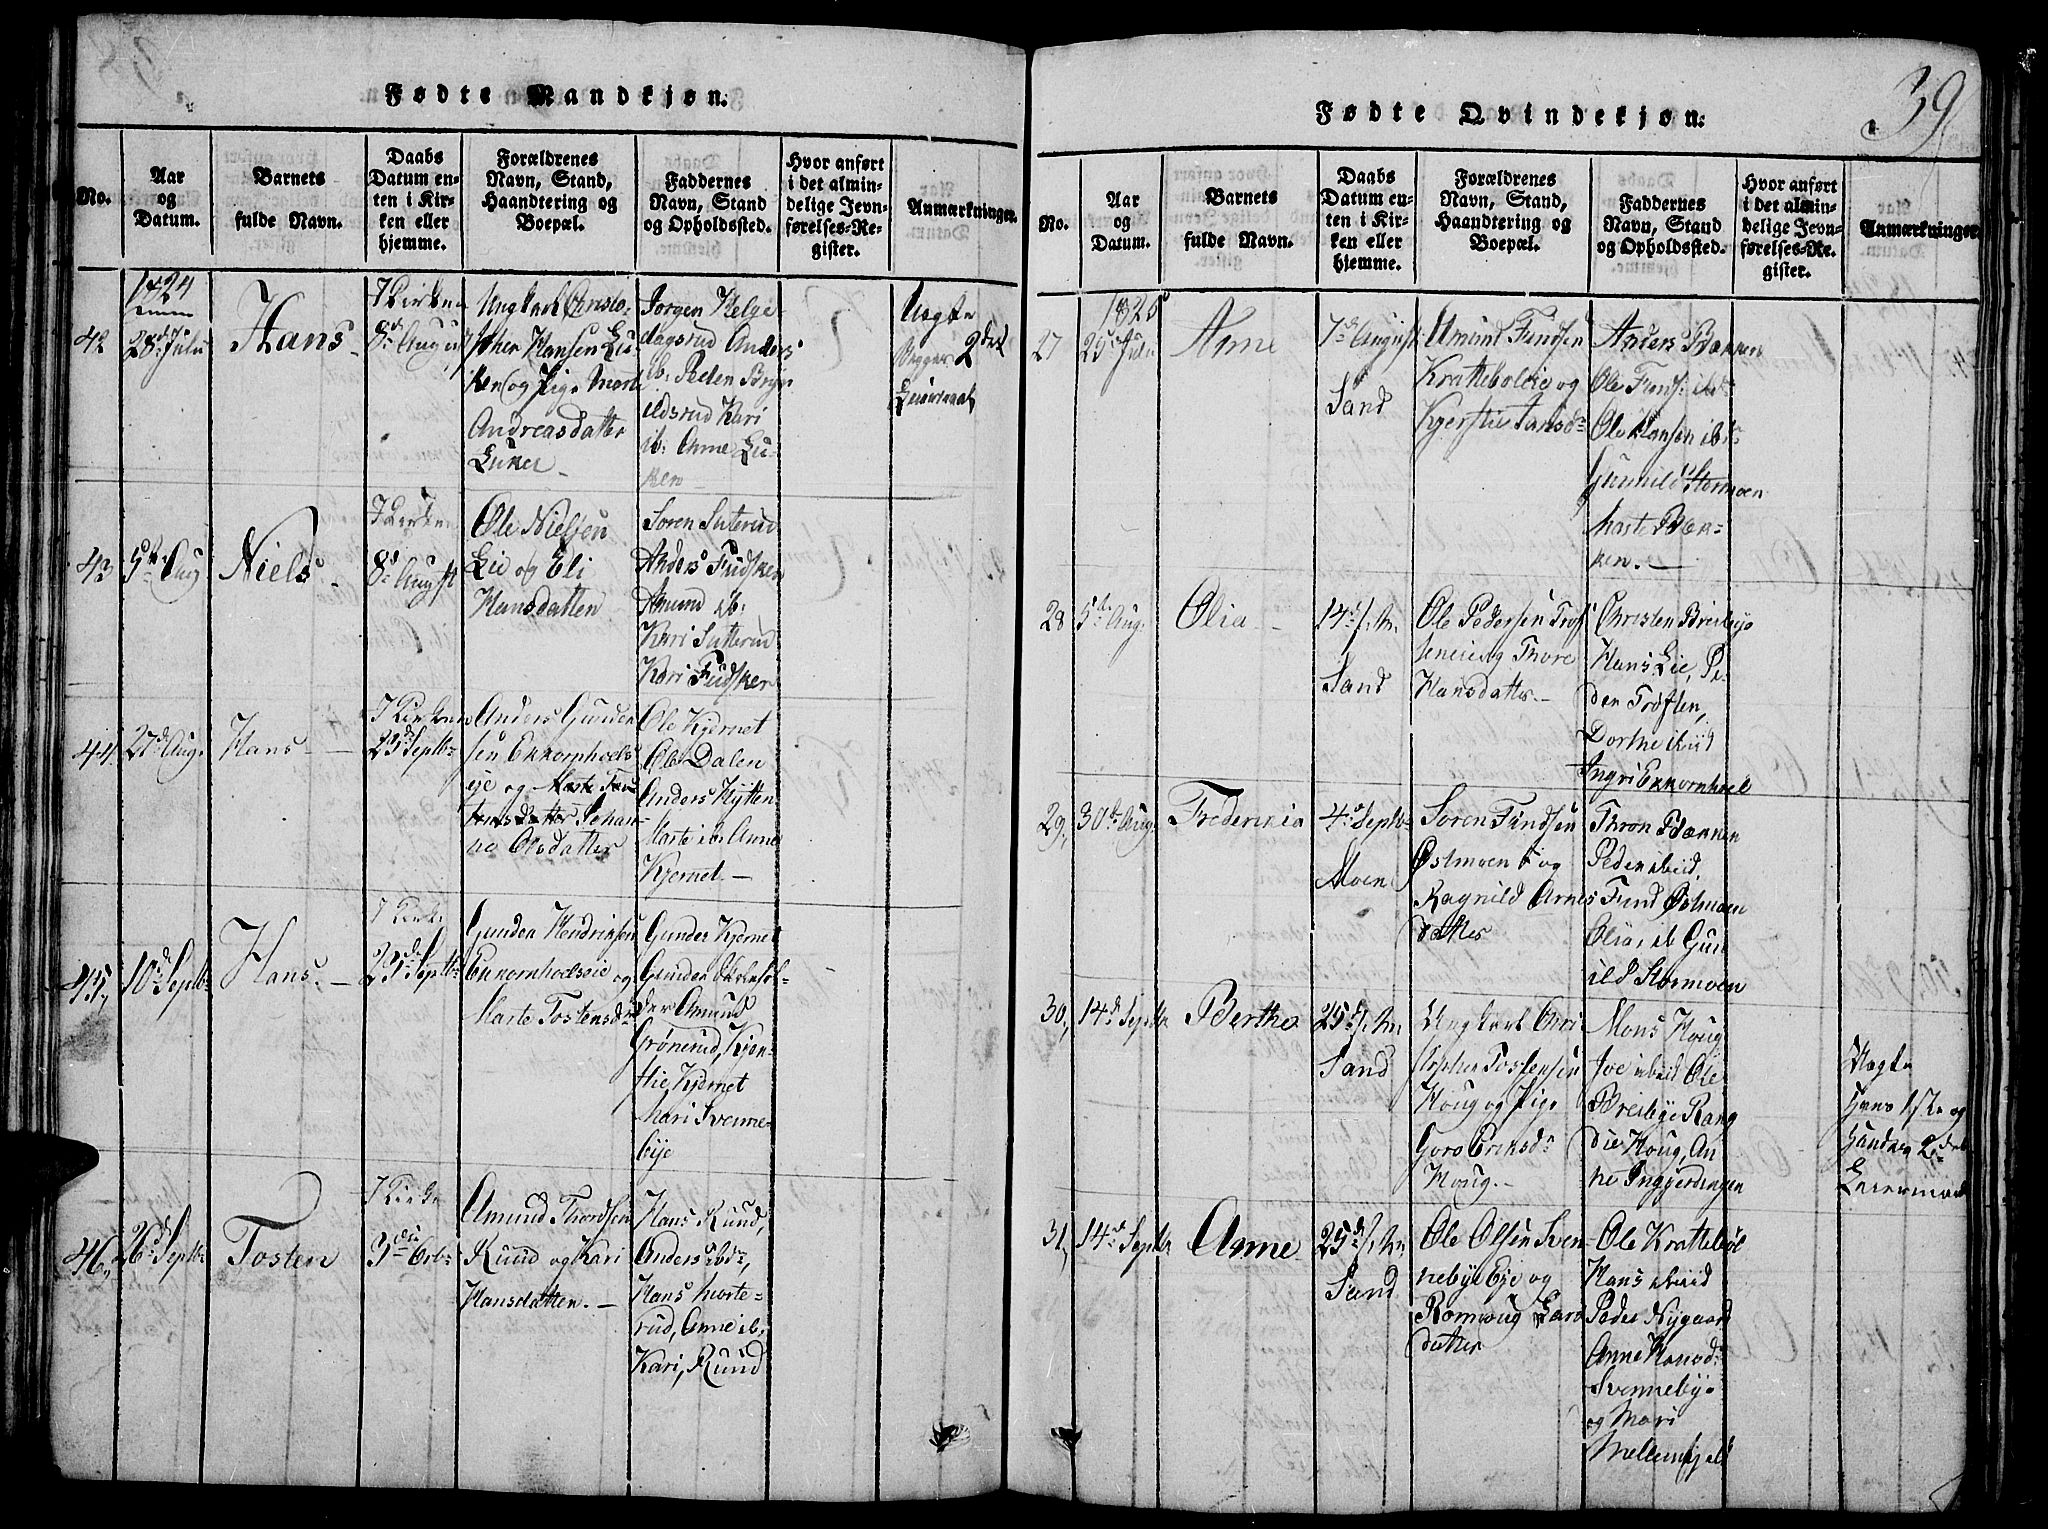 39
Fødte Mandkjøn.
No.
Aar
og
Datum.
Barnets
fulde Navn.
Daabs
Datum en-
ten i Kir-
ken eller
hjemme.
Forældrenes
Navn, Stand,
Haandtering og
Boepæl.
Faddernes
Navn, Stand
og Opholdssted.
Hvor anført
i det almin-
delige Jevn-
førelses-Re-
gister.
Anmærkninger.
1824
42
28de Julii
Hans
I Kirken
8de August
Ungkarl Christo-
pher Hansen Lu-
ken og Pige Marte
Andreasdatter
Luken
Jørgen Helge-
dagsrud Anders
ib: Peder Bryn-
ildsrud Kari
ib: Anne Lu-
ken
Uægte
Begges 2det
Leiermaal
43
5te Aug
Niels
I Kirken
8de August
Ole Nielsen
Lie og Eli
Hansdatter
Søren Sutterud
Anders Fudsker
Amund ib:
Kari Sutterud
Kari Fudsker
44.
27de Aug.
Hans
I Kirken
23de Septbr
Anders Gunder-
sen Ekkornhoels
eje og
Johan-
ne Olsdatter
Ole Kjernet
Ole Dalen
Anders Hytten
Marte ib. Anne
Kjernet
45,
10de Septbr
Hans.
I Kirke
23de Septbr
Gunder Hendriksen
Ekkornhoelseie og
Marte Tostensdr
Gunder Kjernet
Gunder
Amund
Grønerud, Kjer-
stie Kjernet
Mari Svenne-
bye
46,
26de Septbr
Tosten
I Kirke
3die Octbr
Amund Thordsen
Ruud og Kari
Hansdatter.
Hans Ruud,
Anders ibdr,
Hans Morte-
rud, Anne ib.
Kari, Ruud
Fødte Qvindekjøn.
No.
Aar
og
Datum.
Barnets
fulde Navn.
Daabs
Datum en-
ten i Kir-
ken eller
hjemme.
Forældrenes
Navn, Stand,
Haandtering og
Boepæl.
Faddernes
Navn, Stand
og Opholdssted.
Hvor anført
i det almin-
delige Jevn-
førelses-Re-
gister.
Anmærkninger.
1825
27
25de Julii
Anne
7de August
Sand
Amund Findsen
Kratteboleie og
Kjerstie Hansdr
Anders Bækken
Ole Finds: ibdr
Ole Hansen ibdr
Gunild Stormoen
Marte Bæk-
ken.
28
5te Aug.
Olia
14de
Sand
Ole Pedersen Trøf-
teneieog Thore
Hansdatter
Christen Breibye
Hans Lie, Pe-
der Trøften,
Dorthe ibiid
Ingri Ekkornhoel
29,
30te Aug.
Frederikia
4de Septbr
Moen
Søren Findsen
Østmoen og
Ragnild Arnes
datter
Thron Bækken
Peder ibiid.
Find Østmoen
Olia, ib Gun-
ild Stormoen
30,
14de Septbr
Berthe
25de
Sand
Ungkarl Chri-
stopher Tostensen
Houg og Pige
Goro Eriksdr
Houg.
Mons Houg
Joe ibiid Ole
Breibye Rang
die Houg, An-
ne Inggjerdingen
Uægte
Hans 1ste og
Hendes 2det
Leiermaal
31,
14de Septbr
Anne
25de
Sand
Ole Olsen Sven-
nebye Eje og
Romoug Lars
datter
Ole Krattebøl
Hans ibiid
Peder Nygaard
Anne Hansdr
Svennebye
og Mari
Mellemfjeld